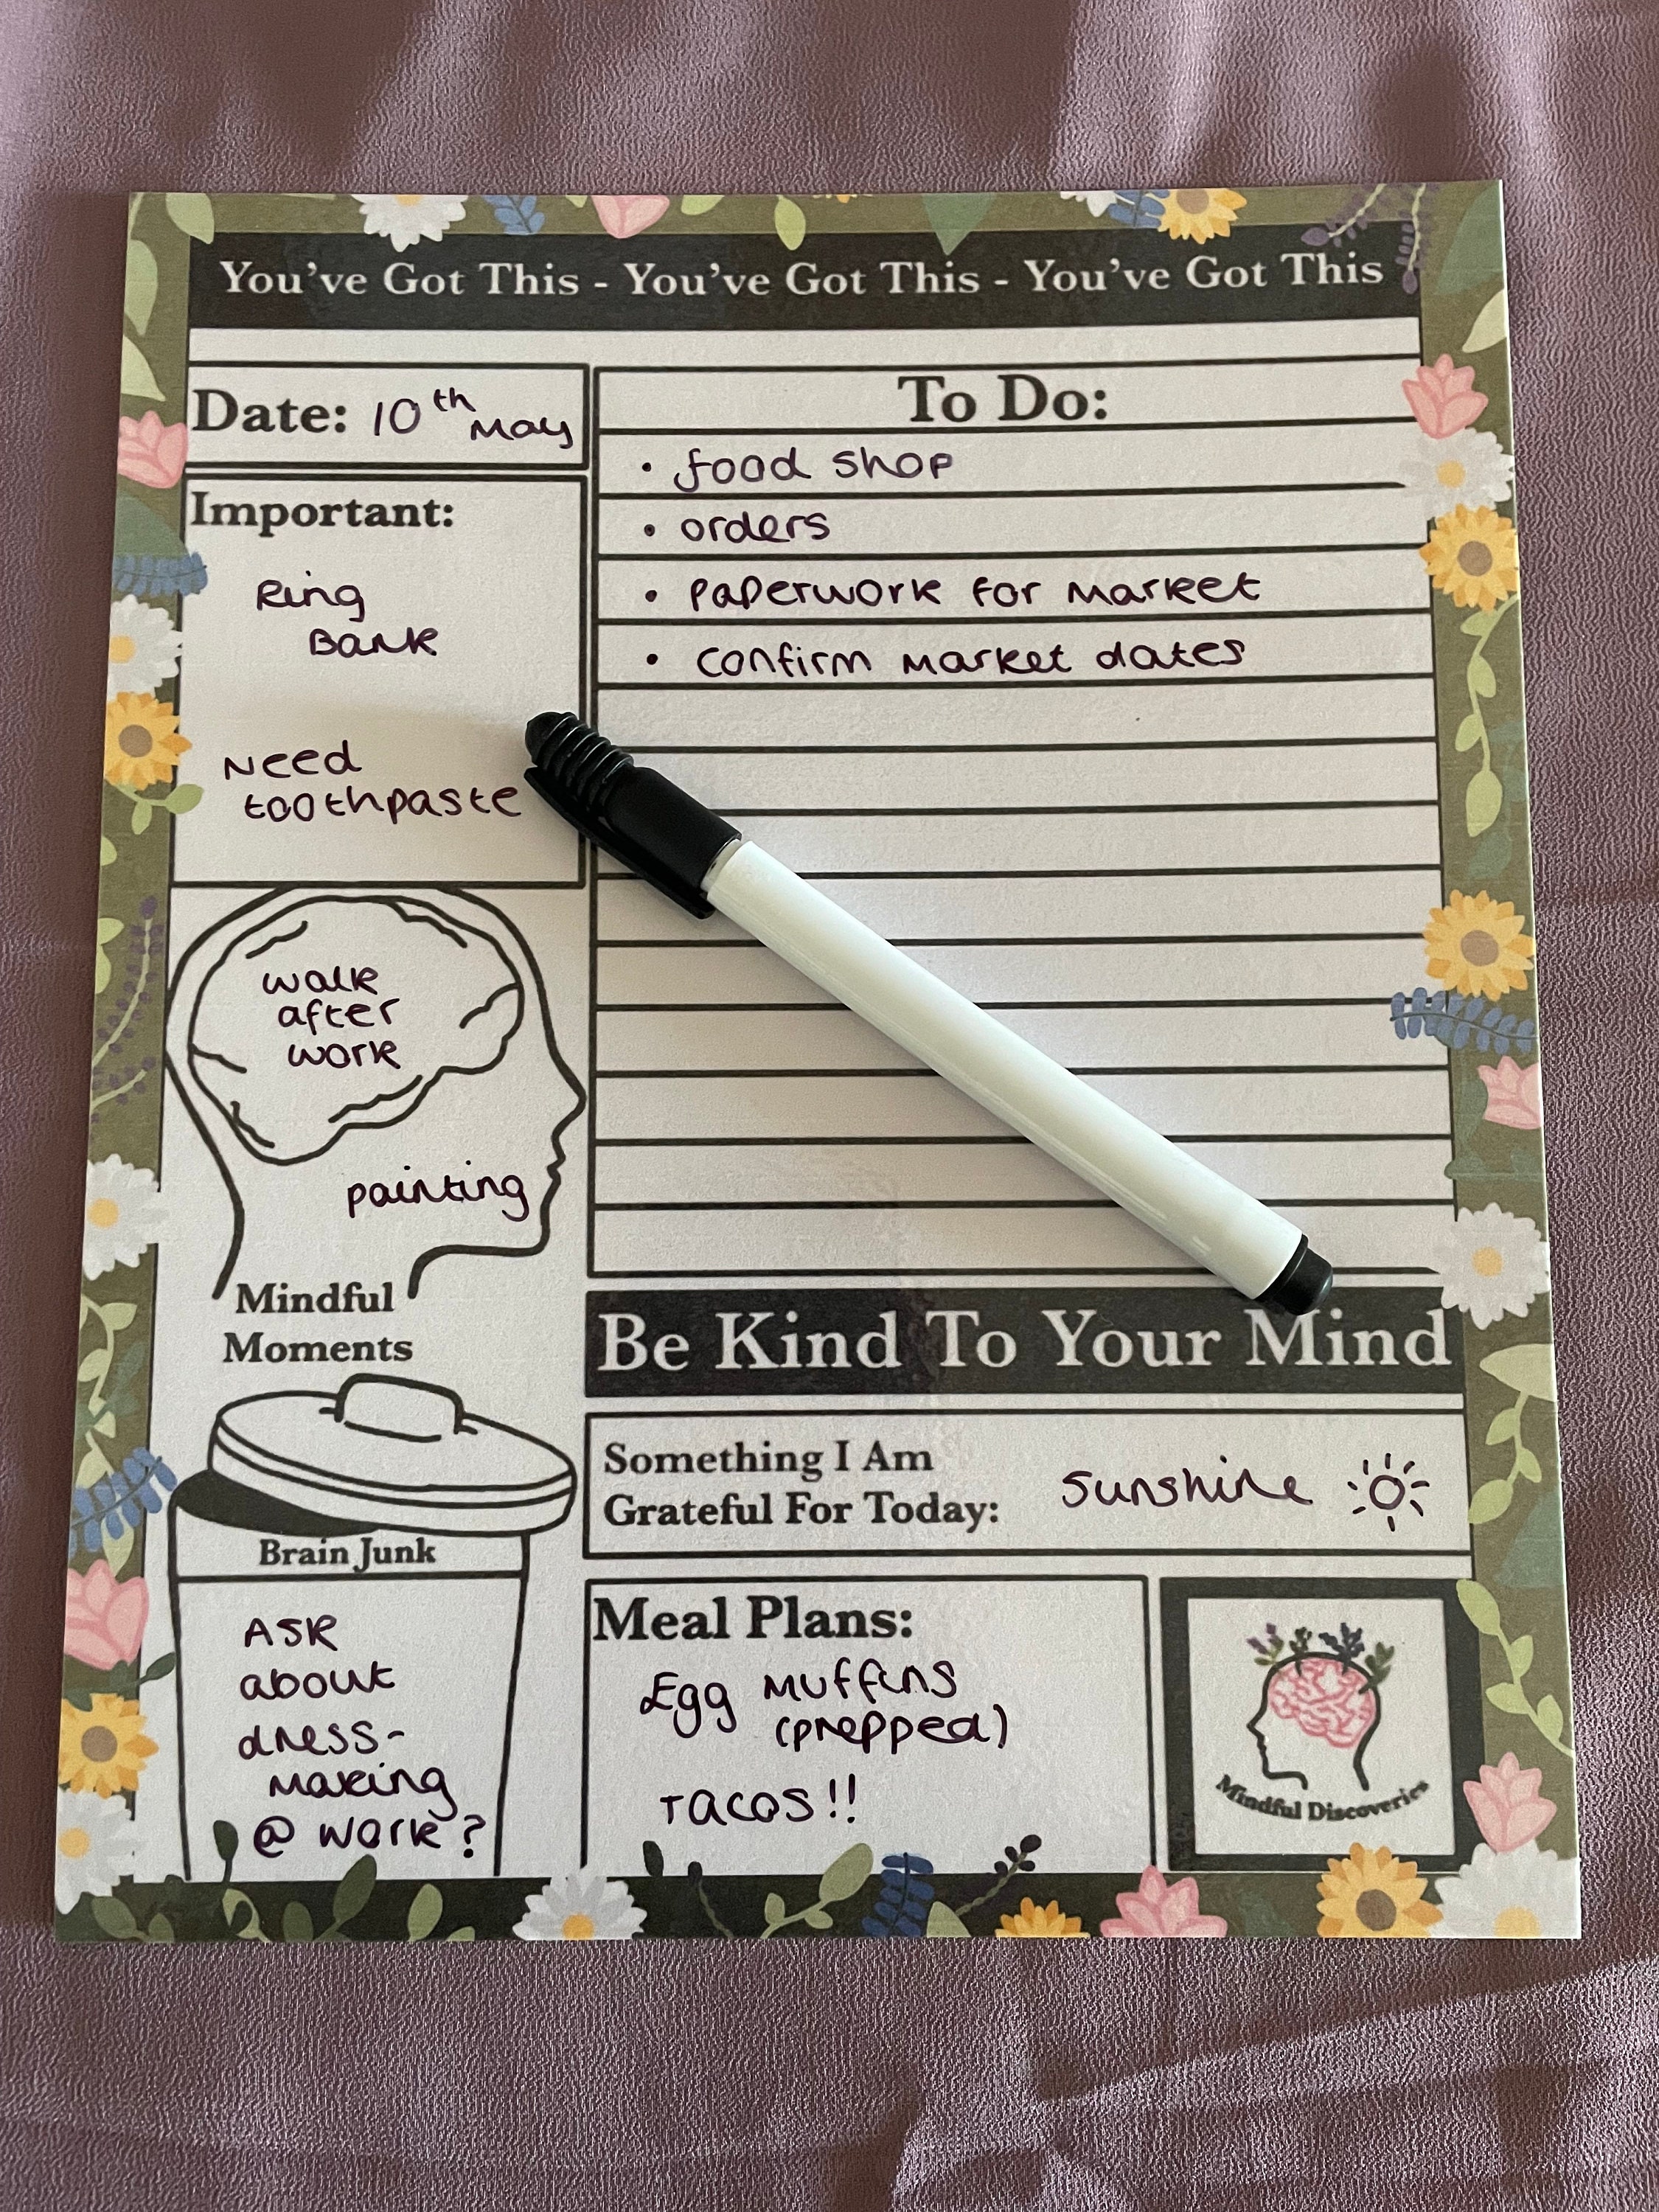 You've Got This - You've Got This - You've Got This
Date: 10th May
Important:
Ring
Bank
Need
toothpaste
To Do:
• food shop
• orders
• paperwork for market
• confirm market dates
walk
after
work
painting
Mindful
Moments
Brain Junk
ASK
about
dress-
making
@ work?
Be Kind To Your Mind
Something I Am
Grateful For Today:
sunshine
Meal Plans:
Egg muffins
(prepped)
Tacos!!
Mindful Discoveries